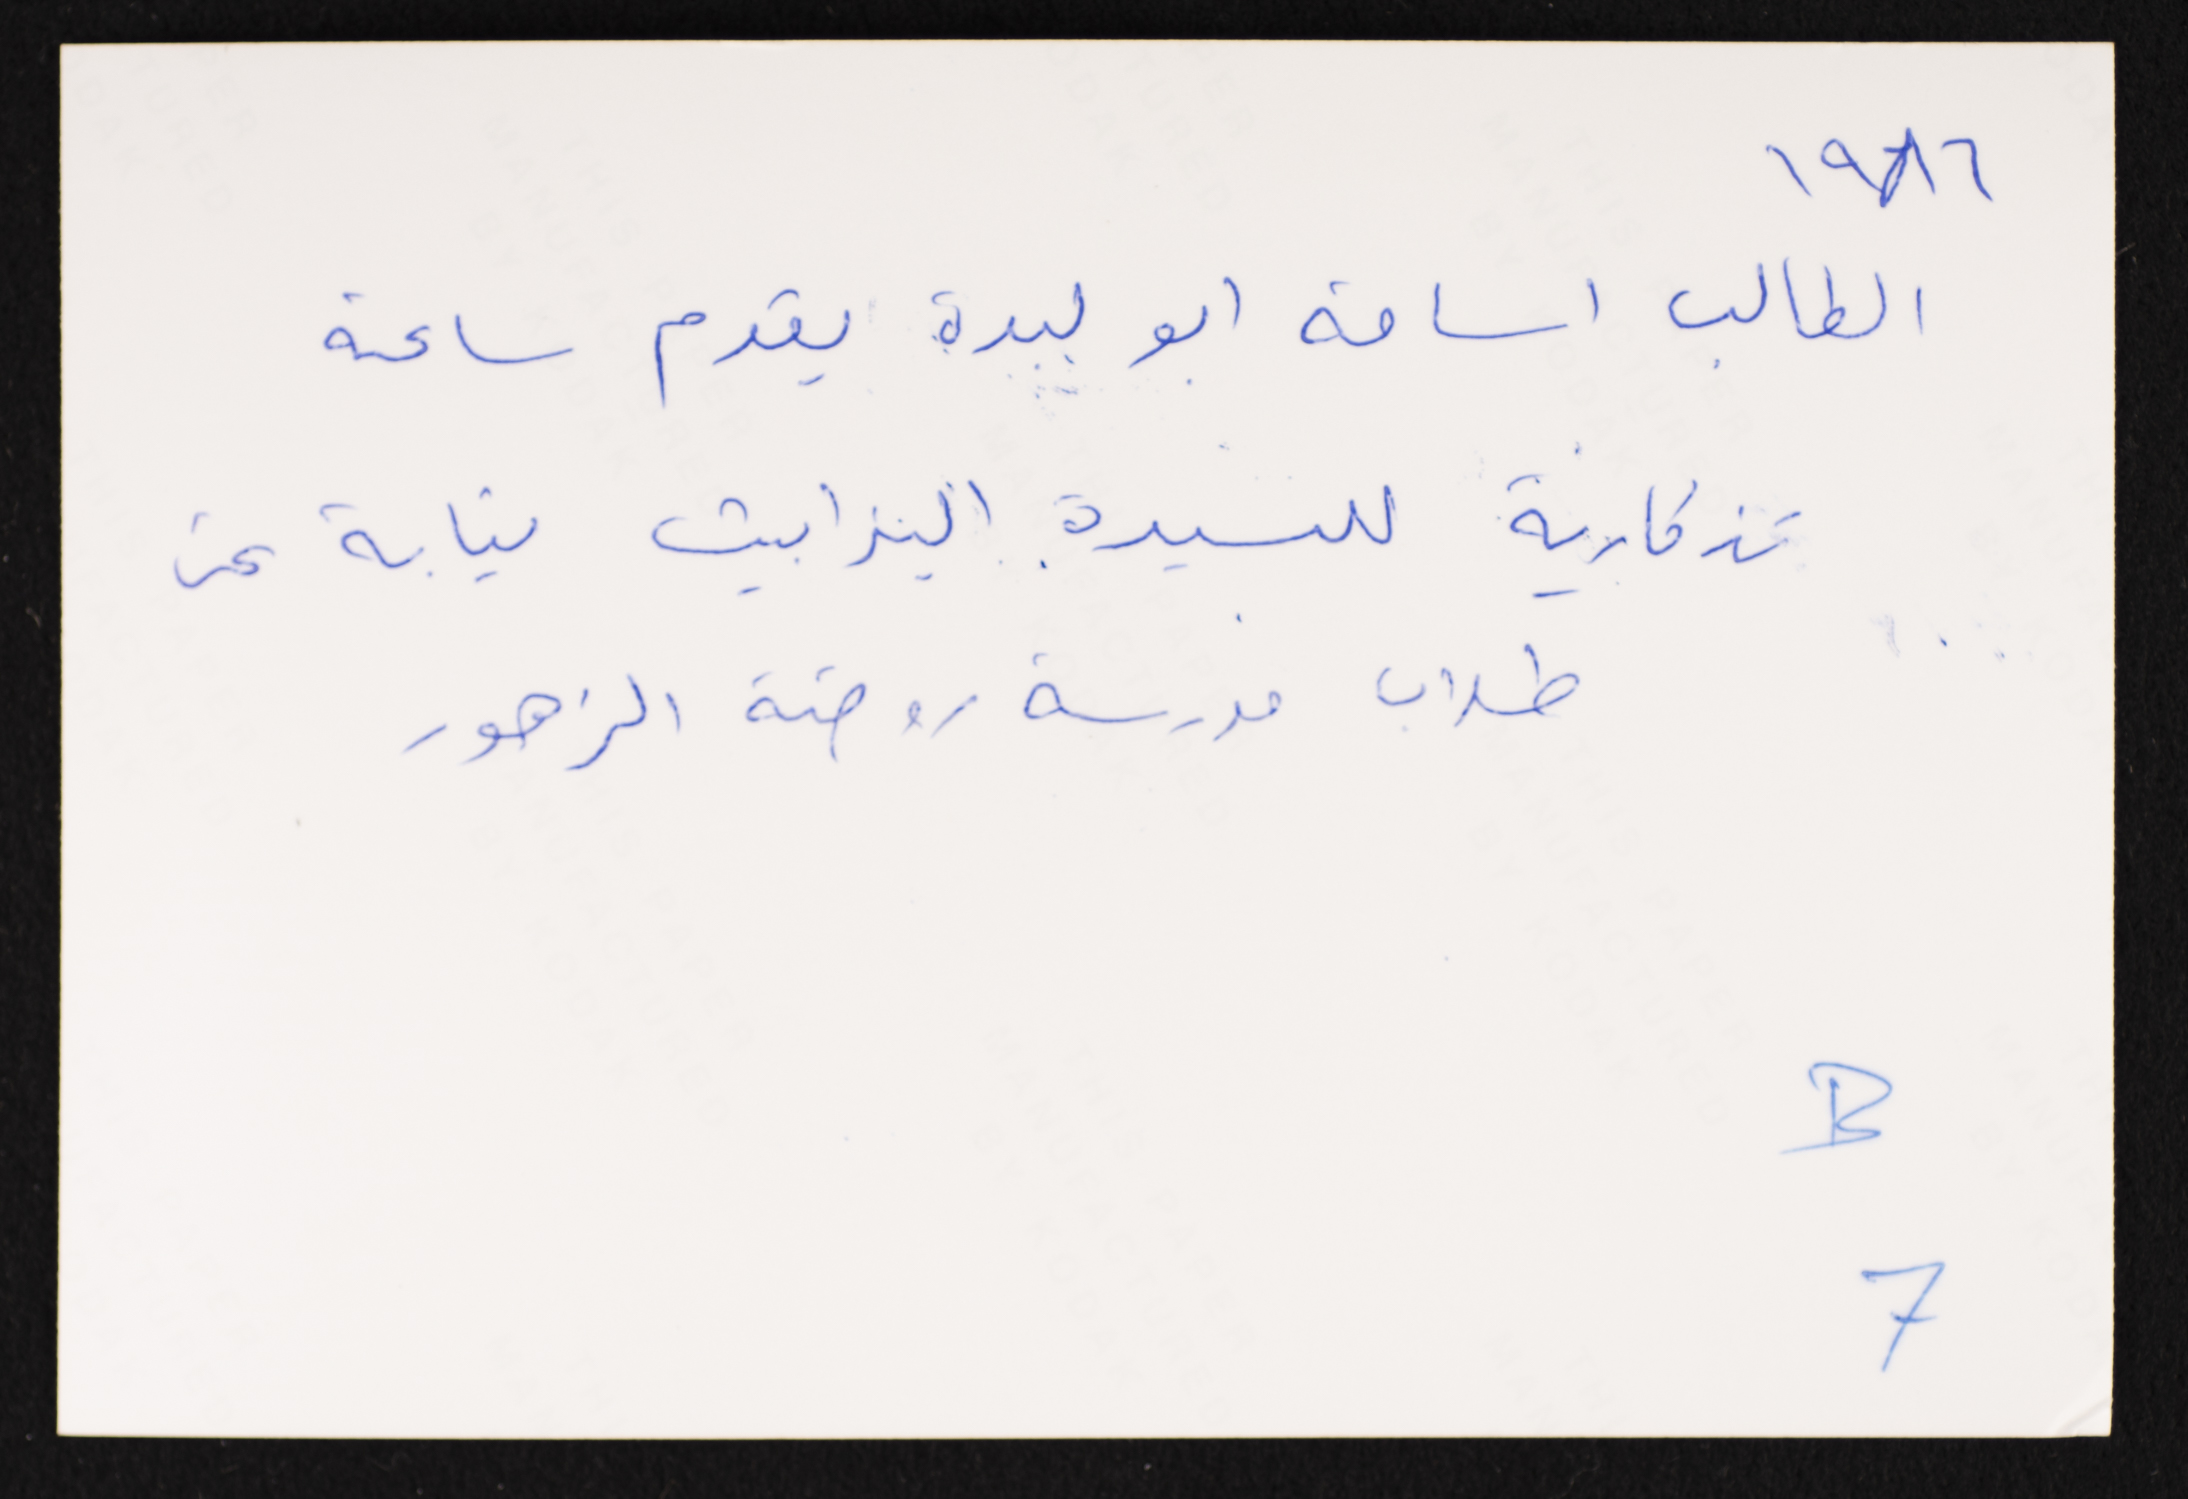 ١٩٨٦
الطالب اسامة ابو لبدة يقدم ساعة
تذكارية للسيدة اليزابيث نيابة عن
طلاب مدرسة روضة الزهور
B
7